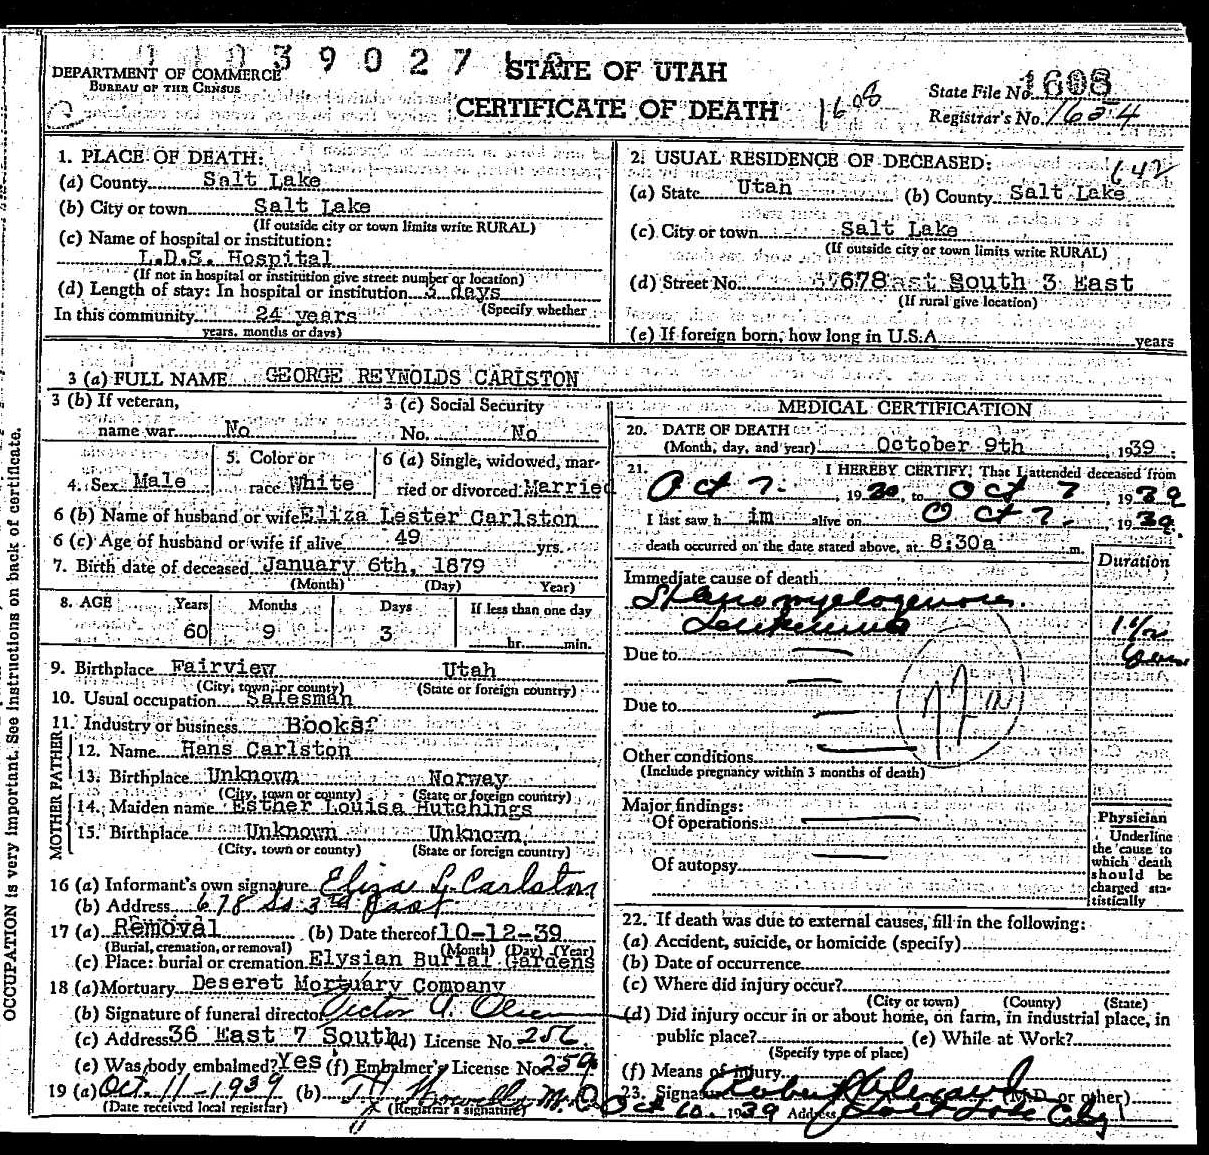 039027
STATE OF UTAH
DEPARTMENT OF COMMERCE
BUREAU OF THE CENSUS
CERTIFICATE OF DEATH
1608
State File No. 1608
Registrar's No. 1624
1. PLACE OF DEATH:
(a) County Salt Lake
(b) City or town Salt Lake
(If outside city or town limits write RURAL)
(c) Name of hospital or institution:
L.D.S. Hospital
(If not in hospital or institution give street number or location)
(d) Length of stay: In hospital or institution 3 days
(Specify whether
In this community 24 years
years, months or days)
2. USUAL RESIDENCE OF DECEASED: 642
(a) State Utah (b) County Salt Lake
(c) City or town Salt Lake
(If outside city or town limits write RURAL)
(d) Street No. 678 South 3 East
(If rural give location)
(e) If foreign born, how long in U.S.A. years
3 (a) FULL NAME GEORGE REYNOLDS CARLSTON
3 (b) If veteran, name war No
3 (c) Social Security No. No
4. Sex Male
5. Color or race White
6 (a) Single, widowed, married or divorced Married
6 (b) Name of husband or wife Eliza Lester Carlston
6 (c) Age of husband or wife if alive 49 yrs.
7. Birth date of deceased January 6th, 1879
(Month) (Day) Year)
8. AGE Years Months Days If less than one day
60 9 3 hr. min.
9. Birthplace Fairview Utah
(City, town, or county) (State or foreign country)
10. Usual occupation Salesman
11. Industry or business Books
FATHER
12. Name Hans Carlston
13. Birthplace Unknown Norway
(City, town or county) (State or foreign country)
MOTHER
14. Maiden name Esther Louisa Hutchings
15. Birthplace Unknown Unknown
(City, town or county) (State or foreign country)
16 (a) Informant's own signature Eliza L. Carlston
(b) Address 678 So 3rd East
17 (a) Removal (b) Date thereof 10-12-39
(Burial, cremation, or removal) (Month) (Day) (Year)
(c) Place: burial or cremation Elysian Burial Gardens
18 (a) Mortuary Deseret Mortuary Company
(b) Signature of funeral director Victor A. Olsen
(c) Address 36 East 7 South (d) License No. 256
(e) Was body embalmed? Yes (f) Embalmer's License No 259
19 (a) Oct. 11-1939 (b) M.D.
(Date received local registrar) (Registrar's signature)
MEDICAL CERTIFICATION
20. DATE OF DEATH
(Month, day, and year) October 9th 1939
21. I HEREBY CERTIFY, That I attended deceased from
Oct 7, 1939, to Oct 7, 1939
I last saw him alive on Oct 7, 1939
death occurred on the date stated above, at 8:30a m.
Duration
Immediate cause of death
myelogenous
Leukemia 1 1/2
Due to
Due to
Other conditions
(Include pregnancy within 3 months of death)
Major findings:
Of operations
Of autopsy
Physician
Underline
the cause to
which death
should be
charged sta-
tistically
22. If death was due to external causes, fill in the following:
(a) Accident, suicide, or homicide (specify)
(b) Date of occurrence
(c) Where did injury occur?
(City or town) (County) (State)
(d) Did injury occur in or about home, on farm, in industrial place, in
public place? (e) While at Work?
(Specify type of place)
(f) Means of injury
23. Signature (M.D. or other)
Oct 10, 1939 Address Salt Lake City
OCCUPATION is very important. See instructions on back of certificate.